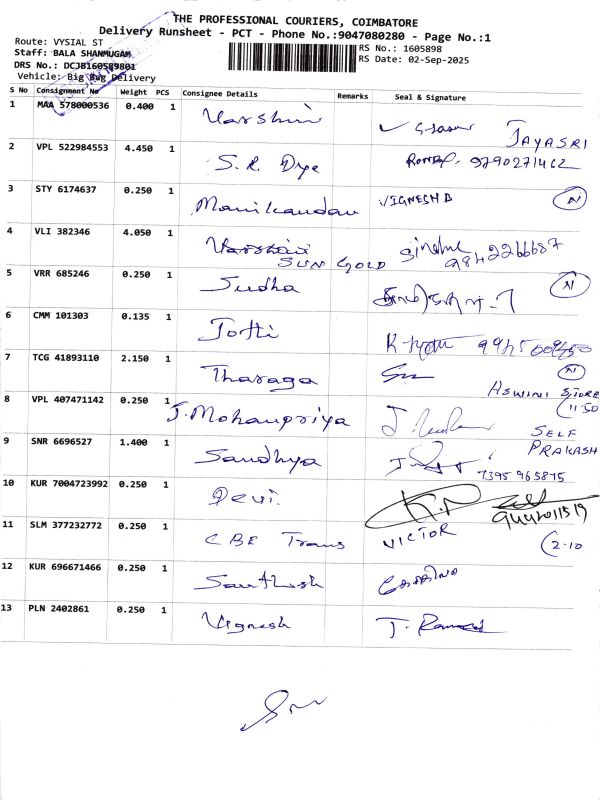 THE PROFESSIONAL COURIERS, COIMBATORE
Delivery Runsheet - PCT - Phone No.:9047080280 - Page No.:1
Route: VYSIAL ST
RS No.: 1605898
Staff: BALA SHANMUGAM
RS Date: 02-Sep-2025
DRS No.: DCJB160589801
Vehicle: Big Bag Delivery
S No Consignment No Weight PCS Consignee Details Remarks Seal & Signature
1 MAA 578000536 0.400 1 Varshini JAYASRI
2 VPL 522984553 4.450 1 S.R. Dye 9790271462
3 STY 6174637 0.250 1 Manikandan VIGNESH B N
4 VLI 382346 4.050 1 Varshini
SUN GOLD 9842266687
5 VRR 685246 0.250 1 Sudha N
6 CMM 101303 0.135 1 Jothi
7 TCG 41893110 2.150 1 Tharaga N
ASWINI STORE
8 VPL 407471142 0.250 1 J. Mohanpriya 11.50
SELF
PRAKASH
9 SNR 6696527 1.400 1 Sandhya
7395965875
10 KUR 7004723992 0.250 1 Devi
11 SLM 377232772 0.250 1 CBE Trans VICTOR 2.10
12 KUR 696671466 0.250 1 Santhosh
13 PLN 2402861 0.250 1 Vignesh